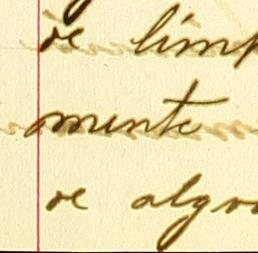 de limp
mente
de algo